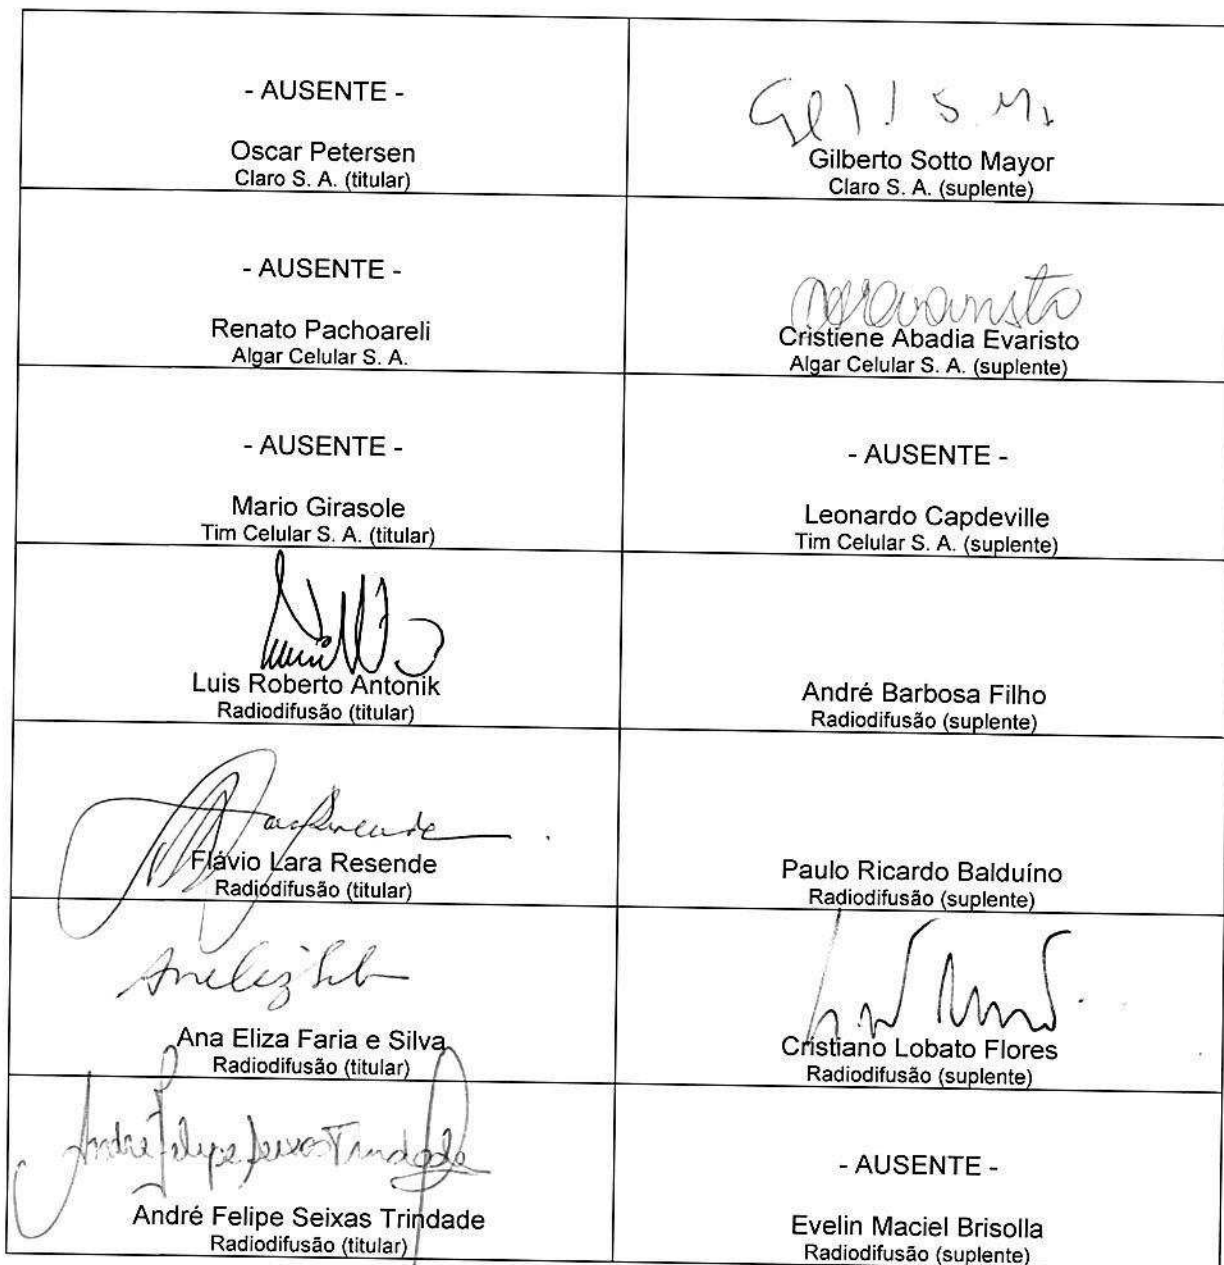 - AUSENTE -
Oscar Petersen
Claro S. A. (titular)
Gilberto Sotto Mayor
Claro S. A. (suplente)
- AUSENTE -
Renato Pachoareli
Algar Celular S. A.
Cristiene Abadia Evaristo
Algar Celular S. A. (suplente)
- AUSENTE -
Mario Girasole
Tim Celular S. A. (titular)
- AUSENTE -
Leonardo Capdeville
Tim Celular S. A. (suplente)
Luis Roberto Antonik
Radiodifusão (titular)
André Barbosa Filho
Radiodifusão (suplente)
Flávio Lara Resende
Radiodifusão (titular)
Paulo Ricardo Balduíno
Radiodifusão (suplente)
Ana Eliza Faria e Silva
Radiodifusão (titular)
Cristiano Lobato Flores
Radiodifusão (suplente)
Andre Felipe Seixas Trindade
André Felipe Seixas Trindade
Radiodifusão (titular)
- AUSENTE -
Evelin Maciel Brisolla
Radiodifusão (suplente)